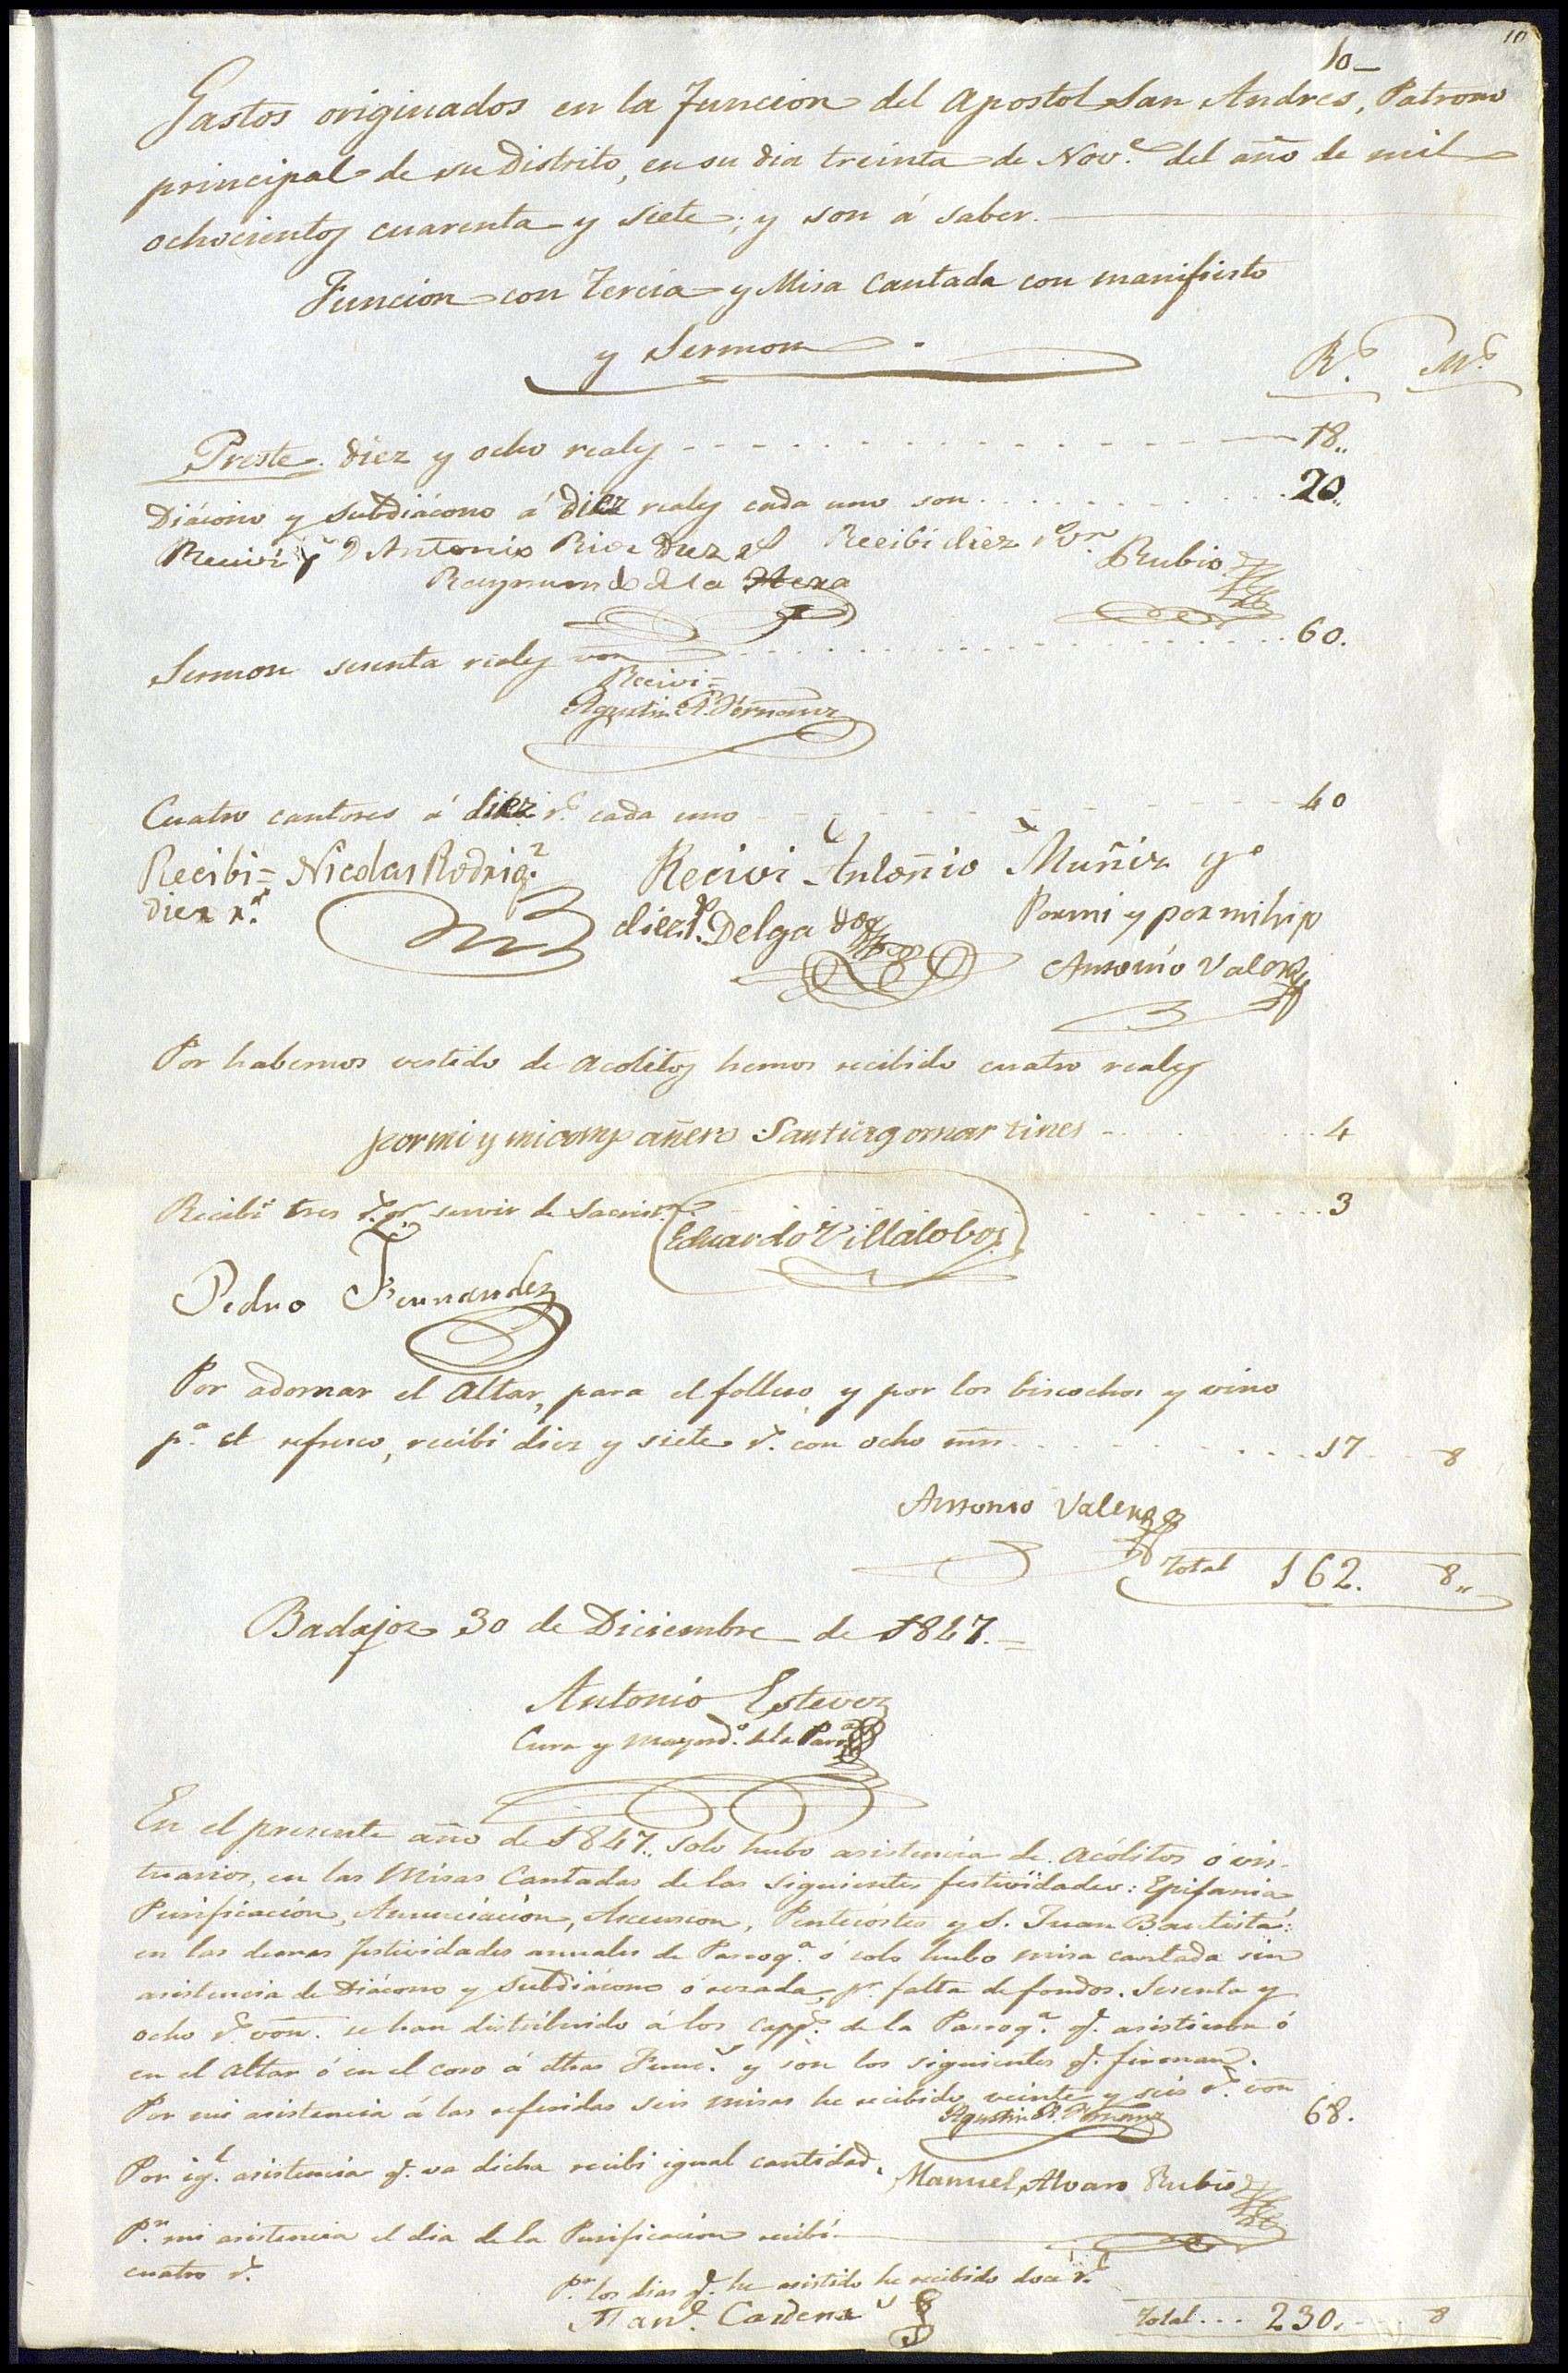 10
10
Gastos originados en la Funcion del Apostol San Andres, Patrono
principal de su Distrito, en su dia treinta de Nov.e del año de mil
ochocientos cuarenta y siete; y son á saber.
Funcion con Tercia y Misa Cantada con manifiesto
y Sermon.
R.s M.s
Preste diez y ocho reales 18,,
Diácono y Subdiácono á diez reales cada uno son 20,,
Recivi Pr D Antonio Rio diez rs Recibi diez rvn
Raymundo de la Hera Rubio
Sermon sesenta reales von 60.
Recivi=
Agustin R. Fernanz
Cuatro cantores á diez r.s cada uno 40
Recibi= Nicolas Rodrig.z Recivi Antoñio Muñiz y
diez r.s diez r. Delgado Por mi y por mi hijo
Antonio Valenz
Por habernos vestido de Acolitos hemos recibido cuatro reales
por mi y mi compañero Santiago martines 4
Recibi tres r.s pr servir de Sacris.n 3
Eduardo Villalobos
Pedro Fernandez
Por adornar el Altar, para el follero, y por los biscochos y vino
p.a el refresco, recibi diez y siete r.s con ocho mrs 17 8
Antonio Valenz
Total 162. 8,,
Badajoz 30 de Diciembre de 1847.=
Antonio Estevez
Cura y Mayord.o de la Parr.a
En el presente año de 1847,, solo hubo asistencia de Acólitos ó ves-
tuarios, en las Misas Cantadas de las siguientes festividades: Epifania
Purificación, Anunciación, Ascension, Pentecóstes y S. Juan Bautista:
en las demas festividades anuales de Parroq.a ó solo hubo misa cantada sin
asistencia de Diácono y Subdiácono ó rezada, pr. falta de fondos. Sesenta y
ocho r.s von. se han distribuido á los Capp.s de la Parroq.a q.e asistieron ó
en el Altar ó en el coro á dhas Func.s y son los siguientes q.e firman.
Por mi asistencia á las referidas seis misas he recibido veinte y seis r.s von
Agustin R. Fernanz 68.
Por ig.l asistencia q.e va dicha recibi igual cantidad. Manuel Alvaro Rubio
P.r mi asistencia el dia de la Purificación recibi
cuatro r.s
P.r los dias q.e he asistido he recibido doce r.s
Man.l Cardenas
Total... 230. 8